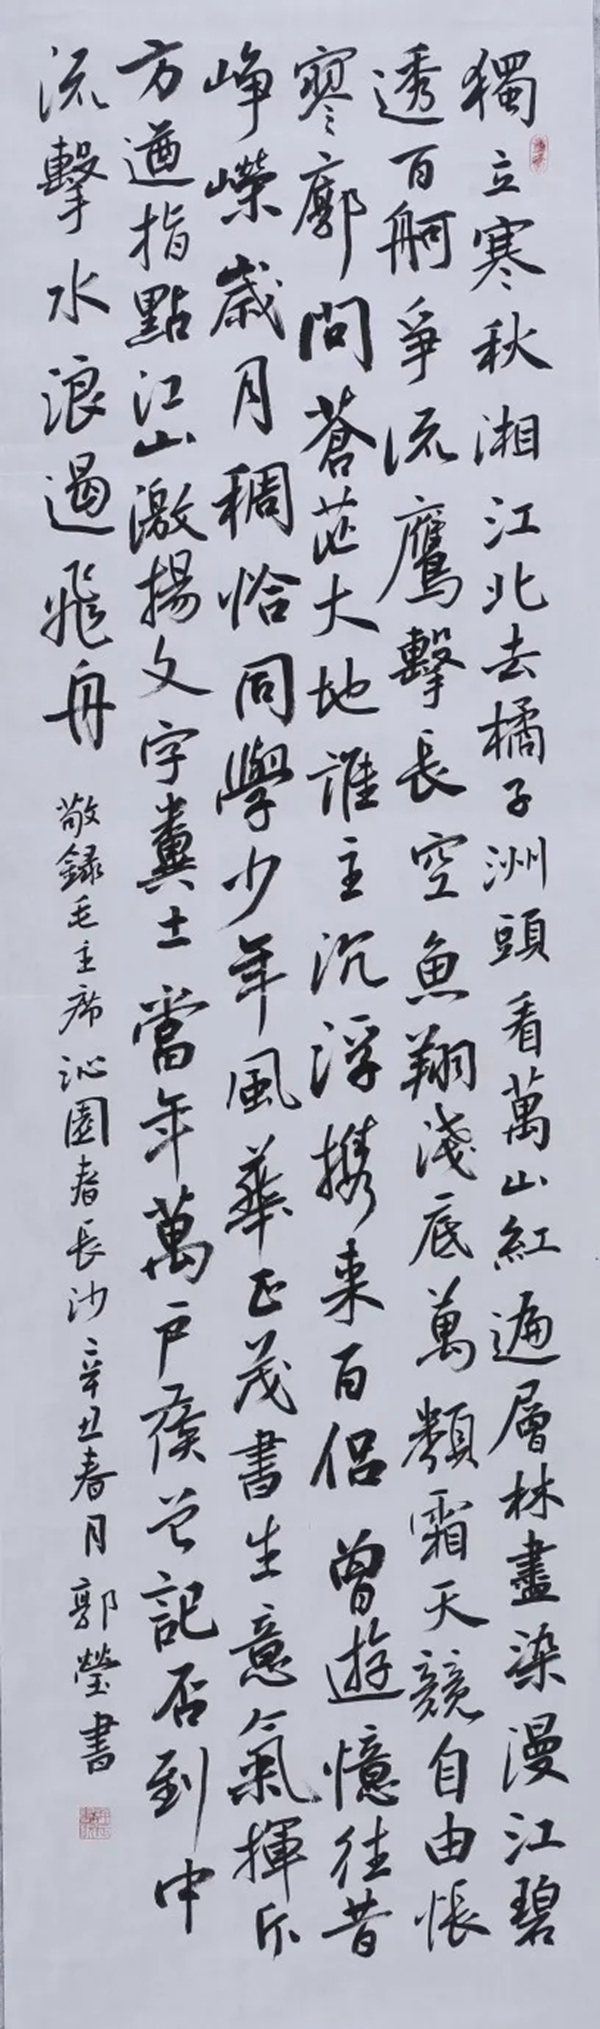 獨立寒秋湘江北去橘子洲頭看萬山紅遍層林盡染漫江碧
透百舸爭流鷹擊長空魚翔淺底萬類霜天競自由悵
寥廓問蒼茫大地誰主沉浮携来百侶曾遊憶往昔
崢嶸歲月稠恰同學少年風華正茂書生意氣揮斥
方遒指點江山激揚文字糞土當年萬户侯曾記否到中
流擊水浪遏飛舟 敬録毛主席沁園春長沙辛丑春月郭瑩書